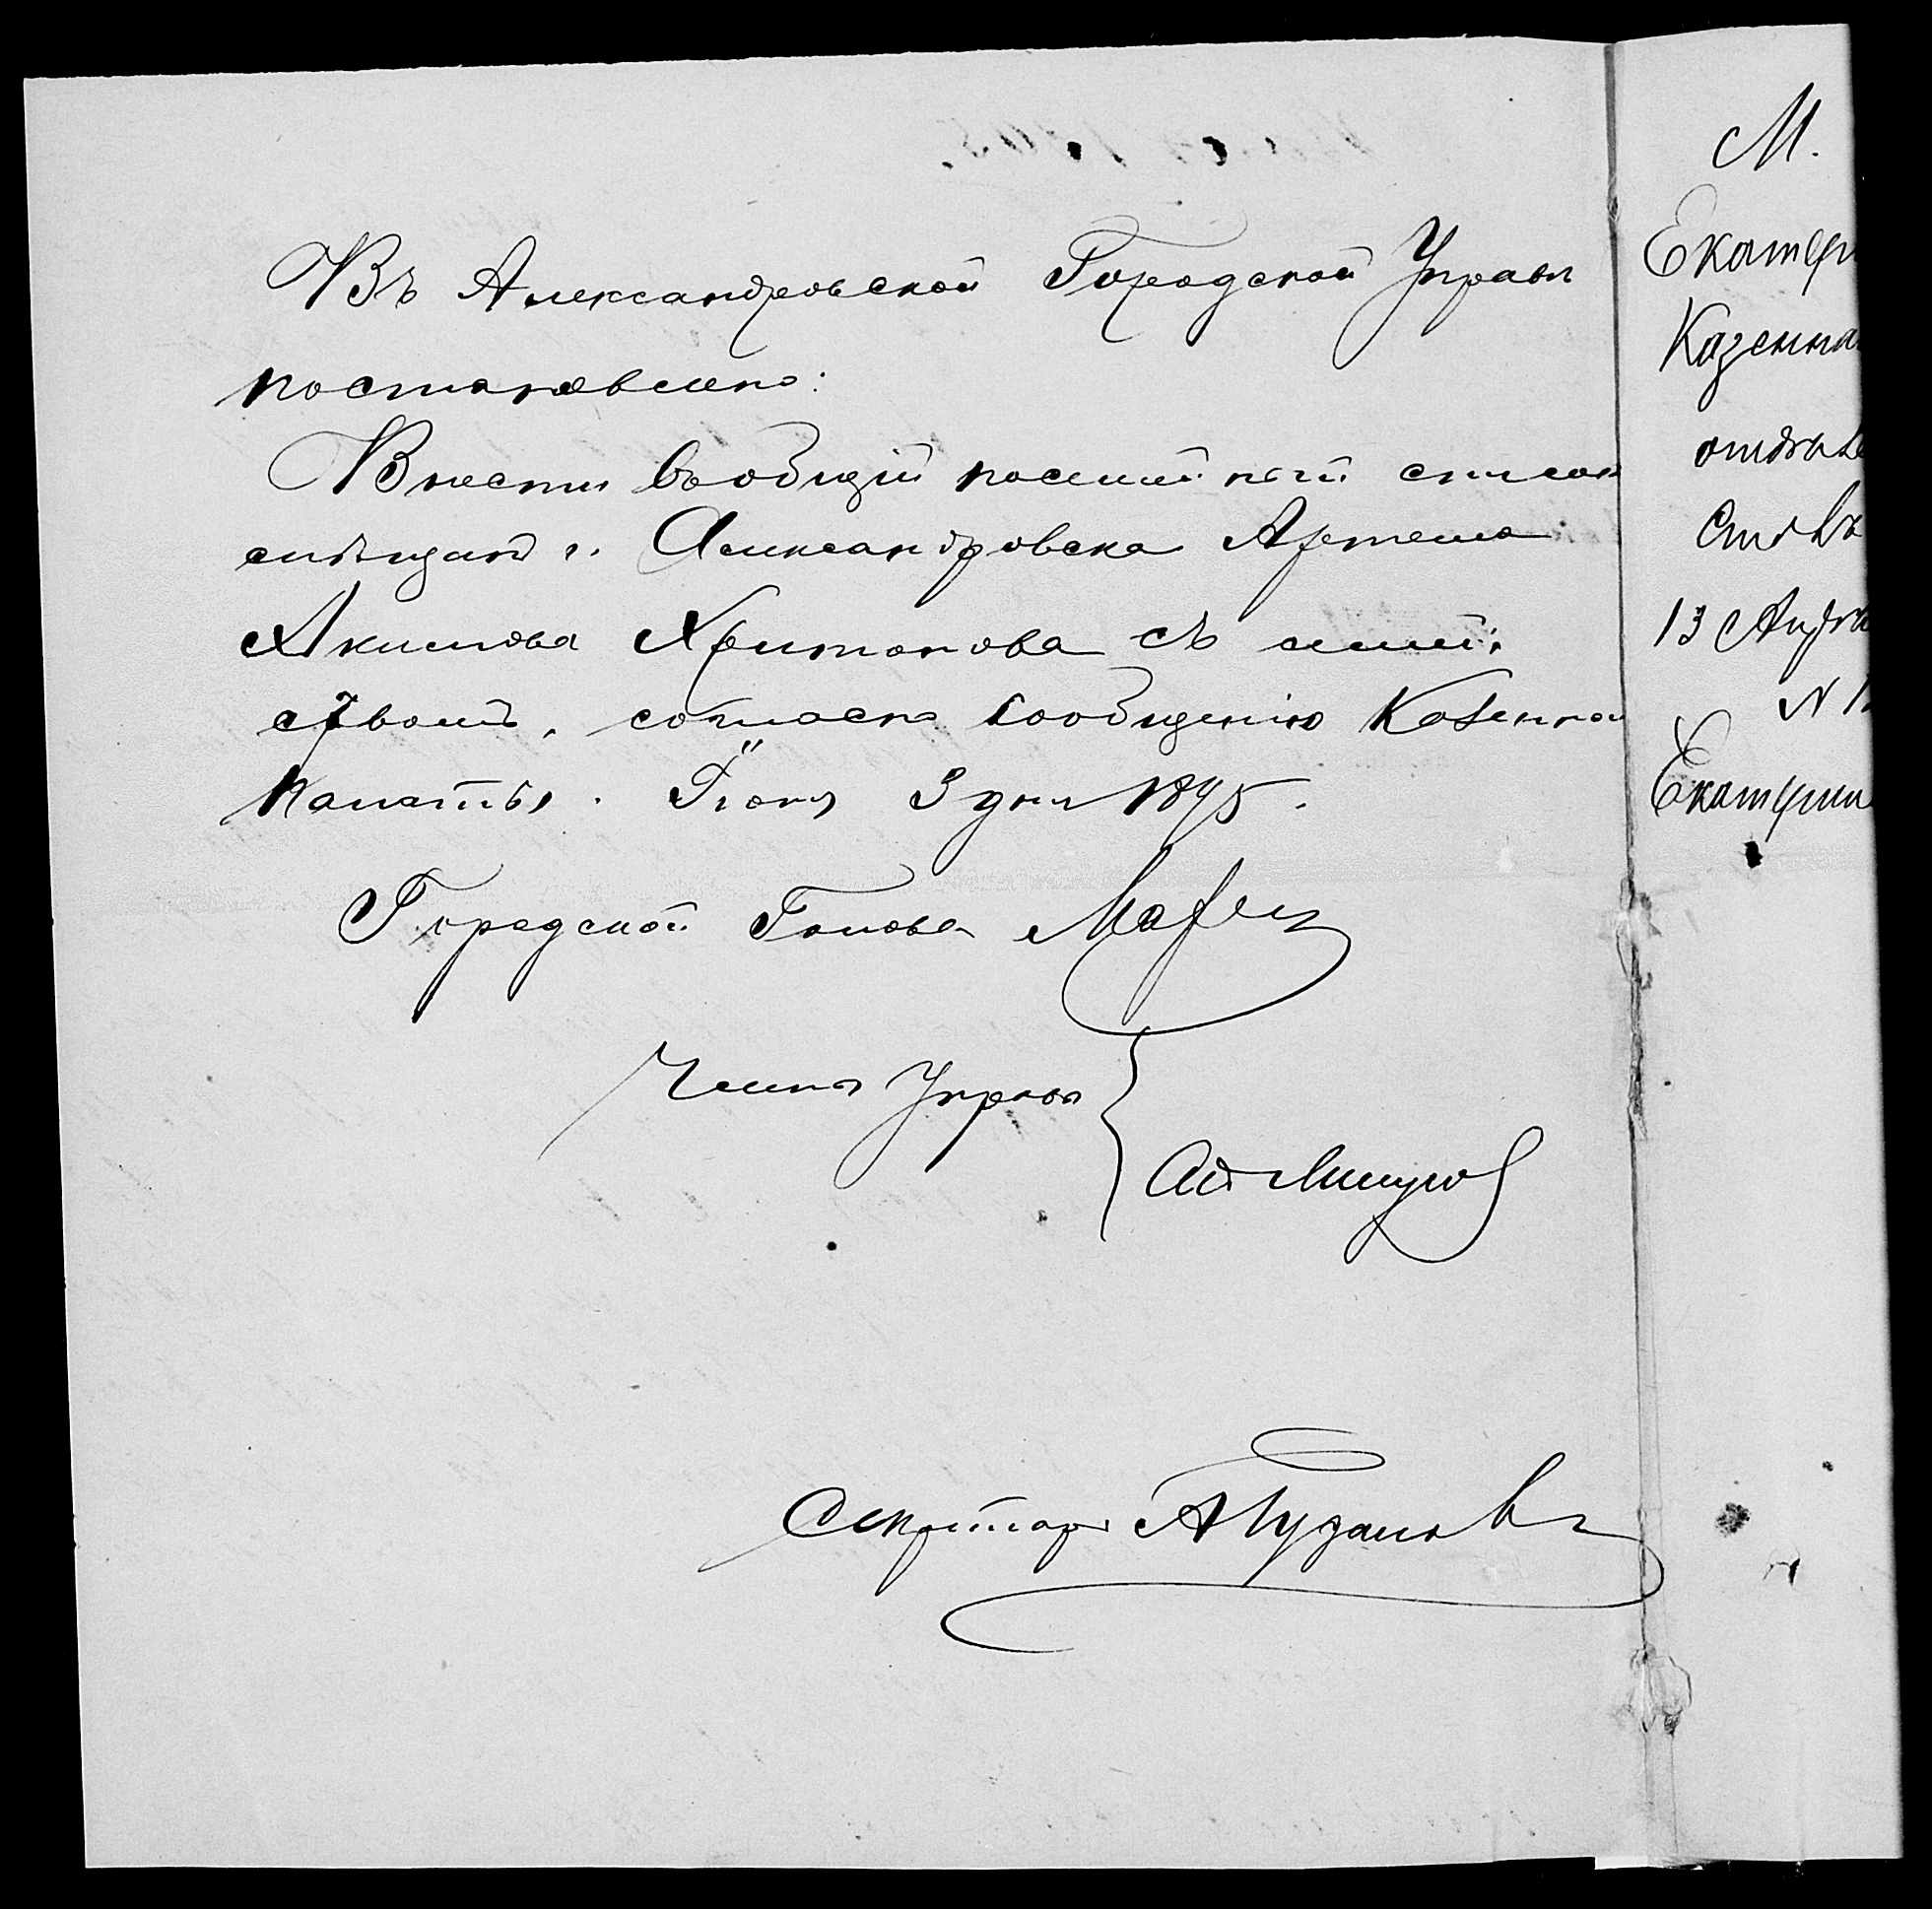 Въ Александровской Городской Управѣ
постановлено:
Внести въ общій посемейный списокъ
мѣщанъ г. Александровска Артема
Акимова Харитонова съ семей-
ствомъ, согласно сообщенію Казенной
Палаты. Іюня 3 дня 1895.
Городской Голова
Члены Управы
Секретарь
М.
Екатери
Казенна
отдѣле
Столъ
13 Апрѣл
N 1
Екатерин